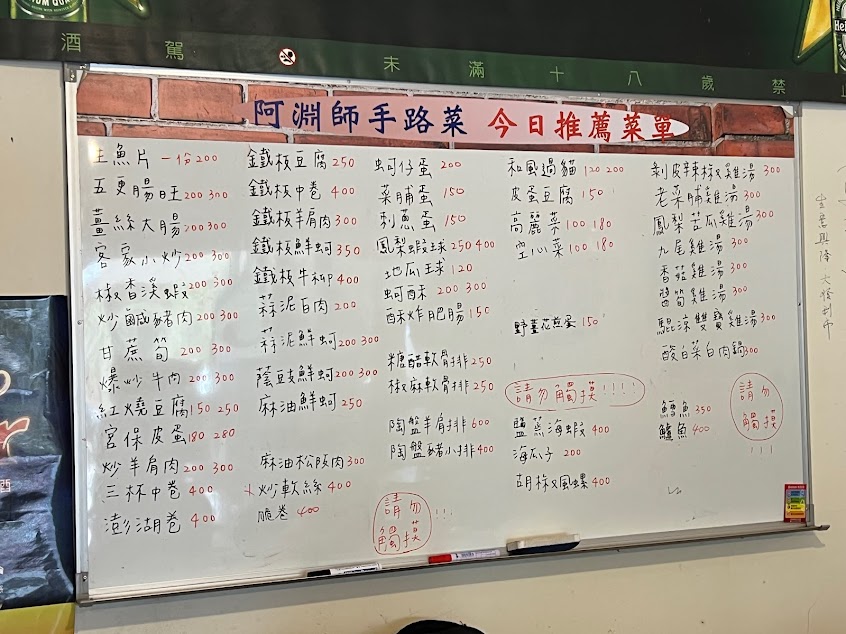 酒駕 未滿十八歲禁止
阿淵師手路菜 今日推薦菜單
生魚片 一份200
五更腸旺 200 300
薑絲大腸 200 300
客家小炒 200 300
椒香溪蝦 200 300
炒鹹豬肉 200 300
甘蔗筍 200 300
爆炒牛肉 200 300
紅燒豆腐 150 250
宮保皮蛋 180 280
炒羊肩肉 200 300
三杯中卷 400
澎湖卷 400
鐵板豆腐 250
鐵板中卷 400
鐵板羊肩肉 300
鐵板鮮蚵 350
鐵板牛柳 400
蒜泥白肉 200
蒜泥鮮蚵 200 300
蔭豉鮮蚵 200 300
麻油鮮蚵 250
麻油松阪肉 300
炒軟絲 400
脆卷 400
蚵仔蛋 200
菜脯蛋 150
刺蔥蛋 150
鳳梨蝦球 250 400
地瓜球 120
蚵酥 200 300
酥炸肥腸 150
糖醋軟骨排 250
椒麻軟骨排 250
陶盤羊肩排 600
陶盤豬小排 400
請勿
觸摸 !!!
和風過貓 120 200
皮蛋豆腐 150
高麗菜 100 180
空心菜 100 180
野薑花煎蛋 150
請勿觸摸!!!!
鹽蒸海蝦 400
海瓜子 200
胡椒風螺 400
剝皮辣椒雞湯 300
老菜脯雞湯 300
鳳梨苦瓜雞湯 300
九尾雞湯 300
香菇雞湯 300
醬筍雞湯 300
鯤涼雙寶雞湯 300
酸白菜白肉鍋 300
鱈魚 350
鱸魚 400
請勿
觸摸
!!!
生意興隆 大發利市